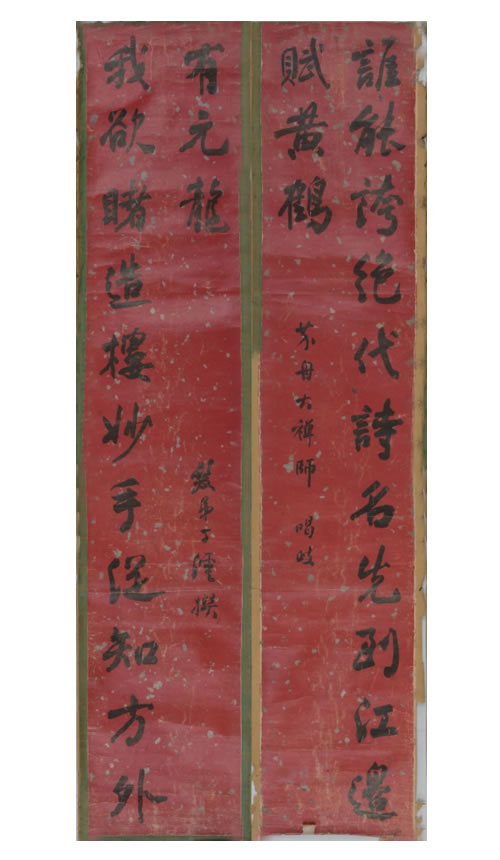 誰能誇絕代詩名先到江邊
賦黃鶴
芥舟大禪師
我欲睹造樓妙手從知方外
有元龍
弟丁 撰